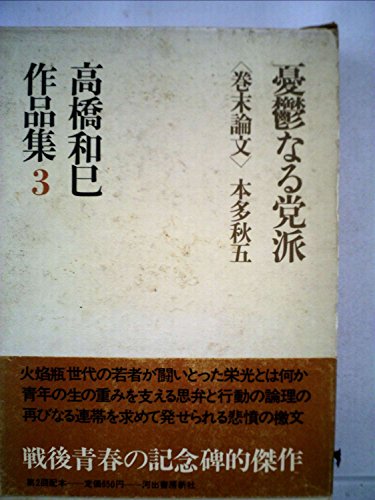 憂鬱なる党派
〈巻末論文〉本多秋五
高橋和巳
作品集3
火焰瓶世代の若者が闘いとった栄光とは何か
青年の生の重みを支える思弁と行動の論理の
再びなる連帯を求めて発せられる悲憤の檄文
戦後青春の記念碑的傑作
第2回配本──定価650円──河出書房新社